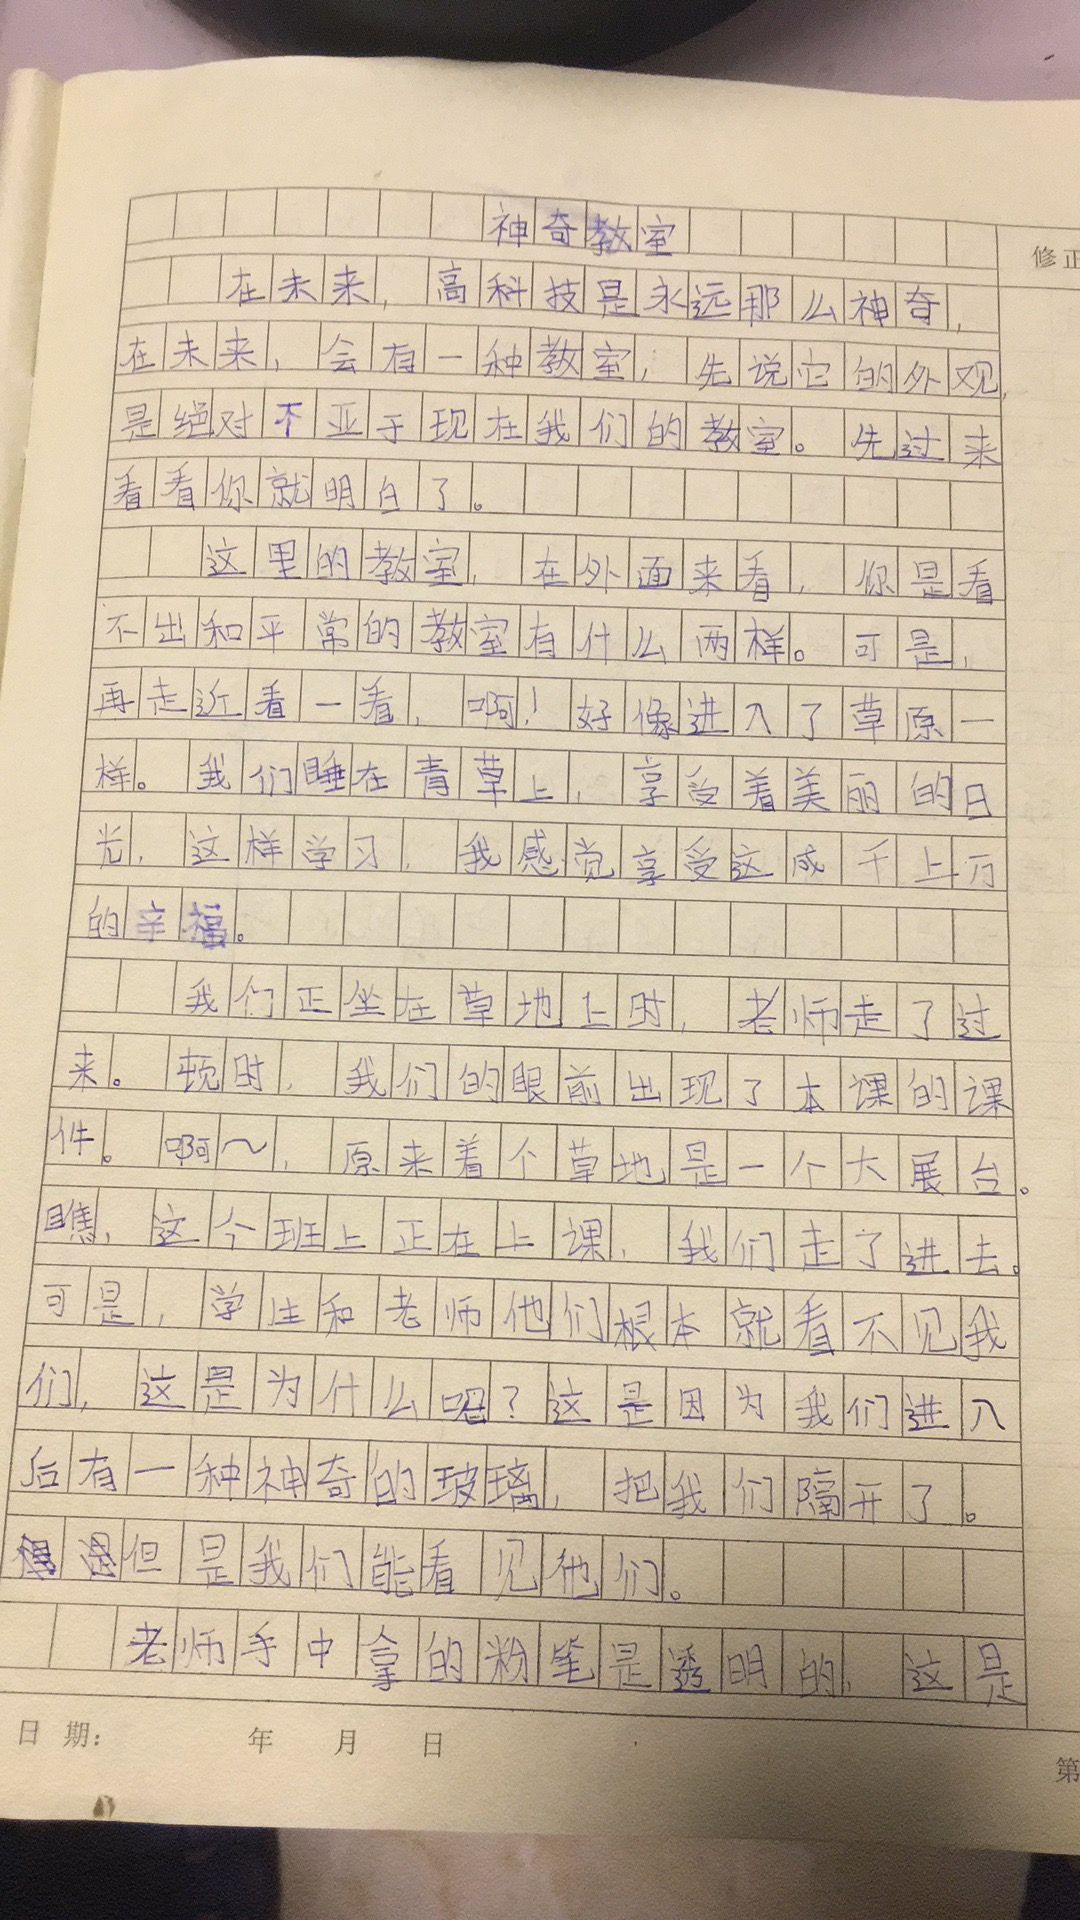 神奇教室
修正
在未来,高科技是永远那么神奇,
在未来,会有一种教室,先说它的外观,
是绝对不亚于现在我们的教室。先过来
看看你就明白了。
这里的教室,在外面来看,你是看
不出和平常的教室有什么两样。可是,
再走近看一看,啊!好像进入了草原一
样。我们睡在青草上,享受着美丽的日
光,这样学习,我感觉享受这成千上万
的幸福。
我们正坐在草地上时,老师走了过
来。顿时,我们的眼前出现了本课的课
件。啊~,原来着个草地是一个大展台。
瞧,这个班上正在上课,我们走了进去。
可是,学生和老师他们根本就看不见我
们,这是为什么呢?这是因为我们进入
后有一种神奇的玻璃,把我们隔开了。
但是我们能看见他们。
老师手中拿的粉笔是透明的,这是
日期: 年 月 日
第